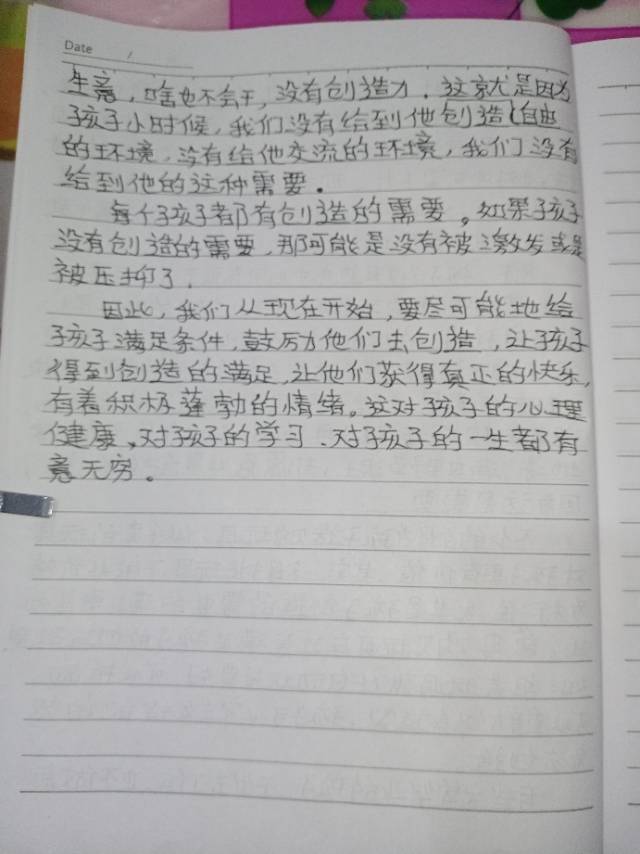 Date /
生意，啥也不会干，没有创造力．这就是因为
孩子小时候，我们没有给到他创造自由
的环境，没有给他交流的环境，我们没有
给到他的这种需要。
每个孩子都有创造的需要。如果孩子
没有创造的需要，那可能是没有被激发或是
被压抑了．
因此，我们从现在开始，要尽可能地给
孩子满足条件，鼓励他们去创造，让孩子
得到创造的满足，让他们获得真正的快乐，
有着积极蓬勃的情绪。这对孩子的心理
健康，对孩子的学习．对孩子的一生都有
意无穷。